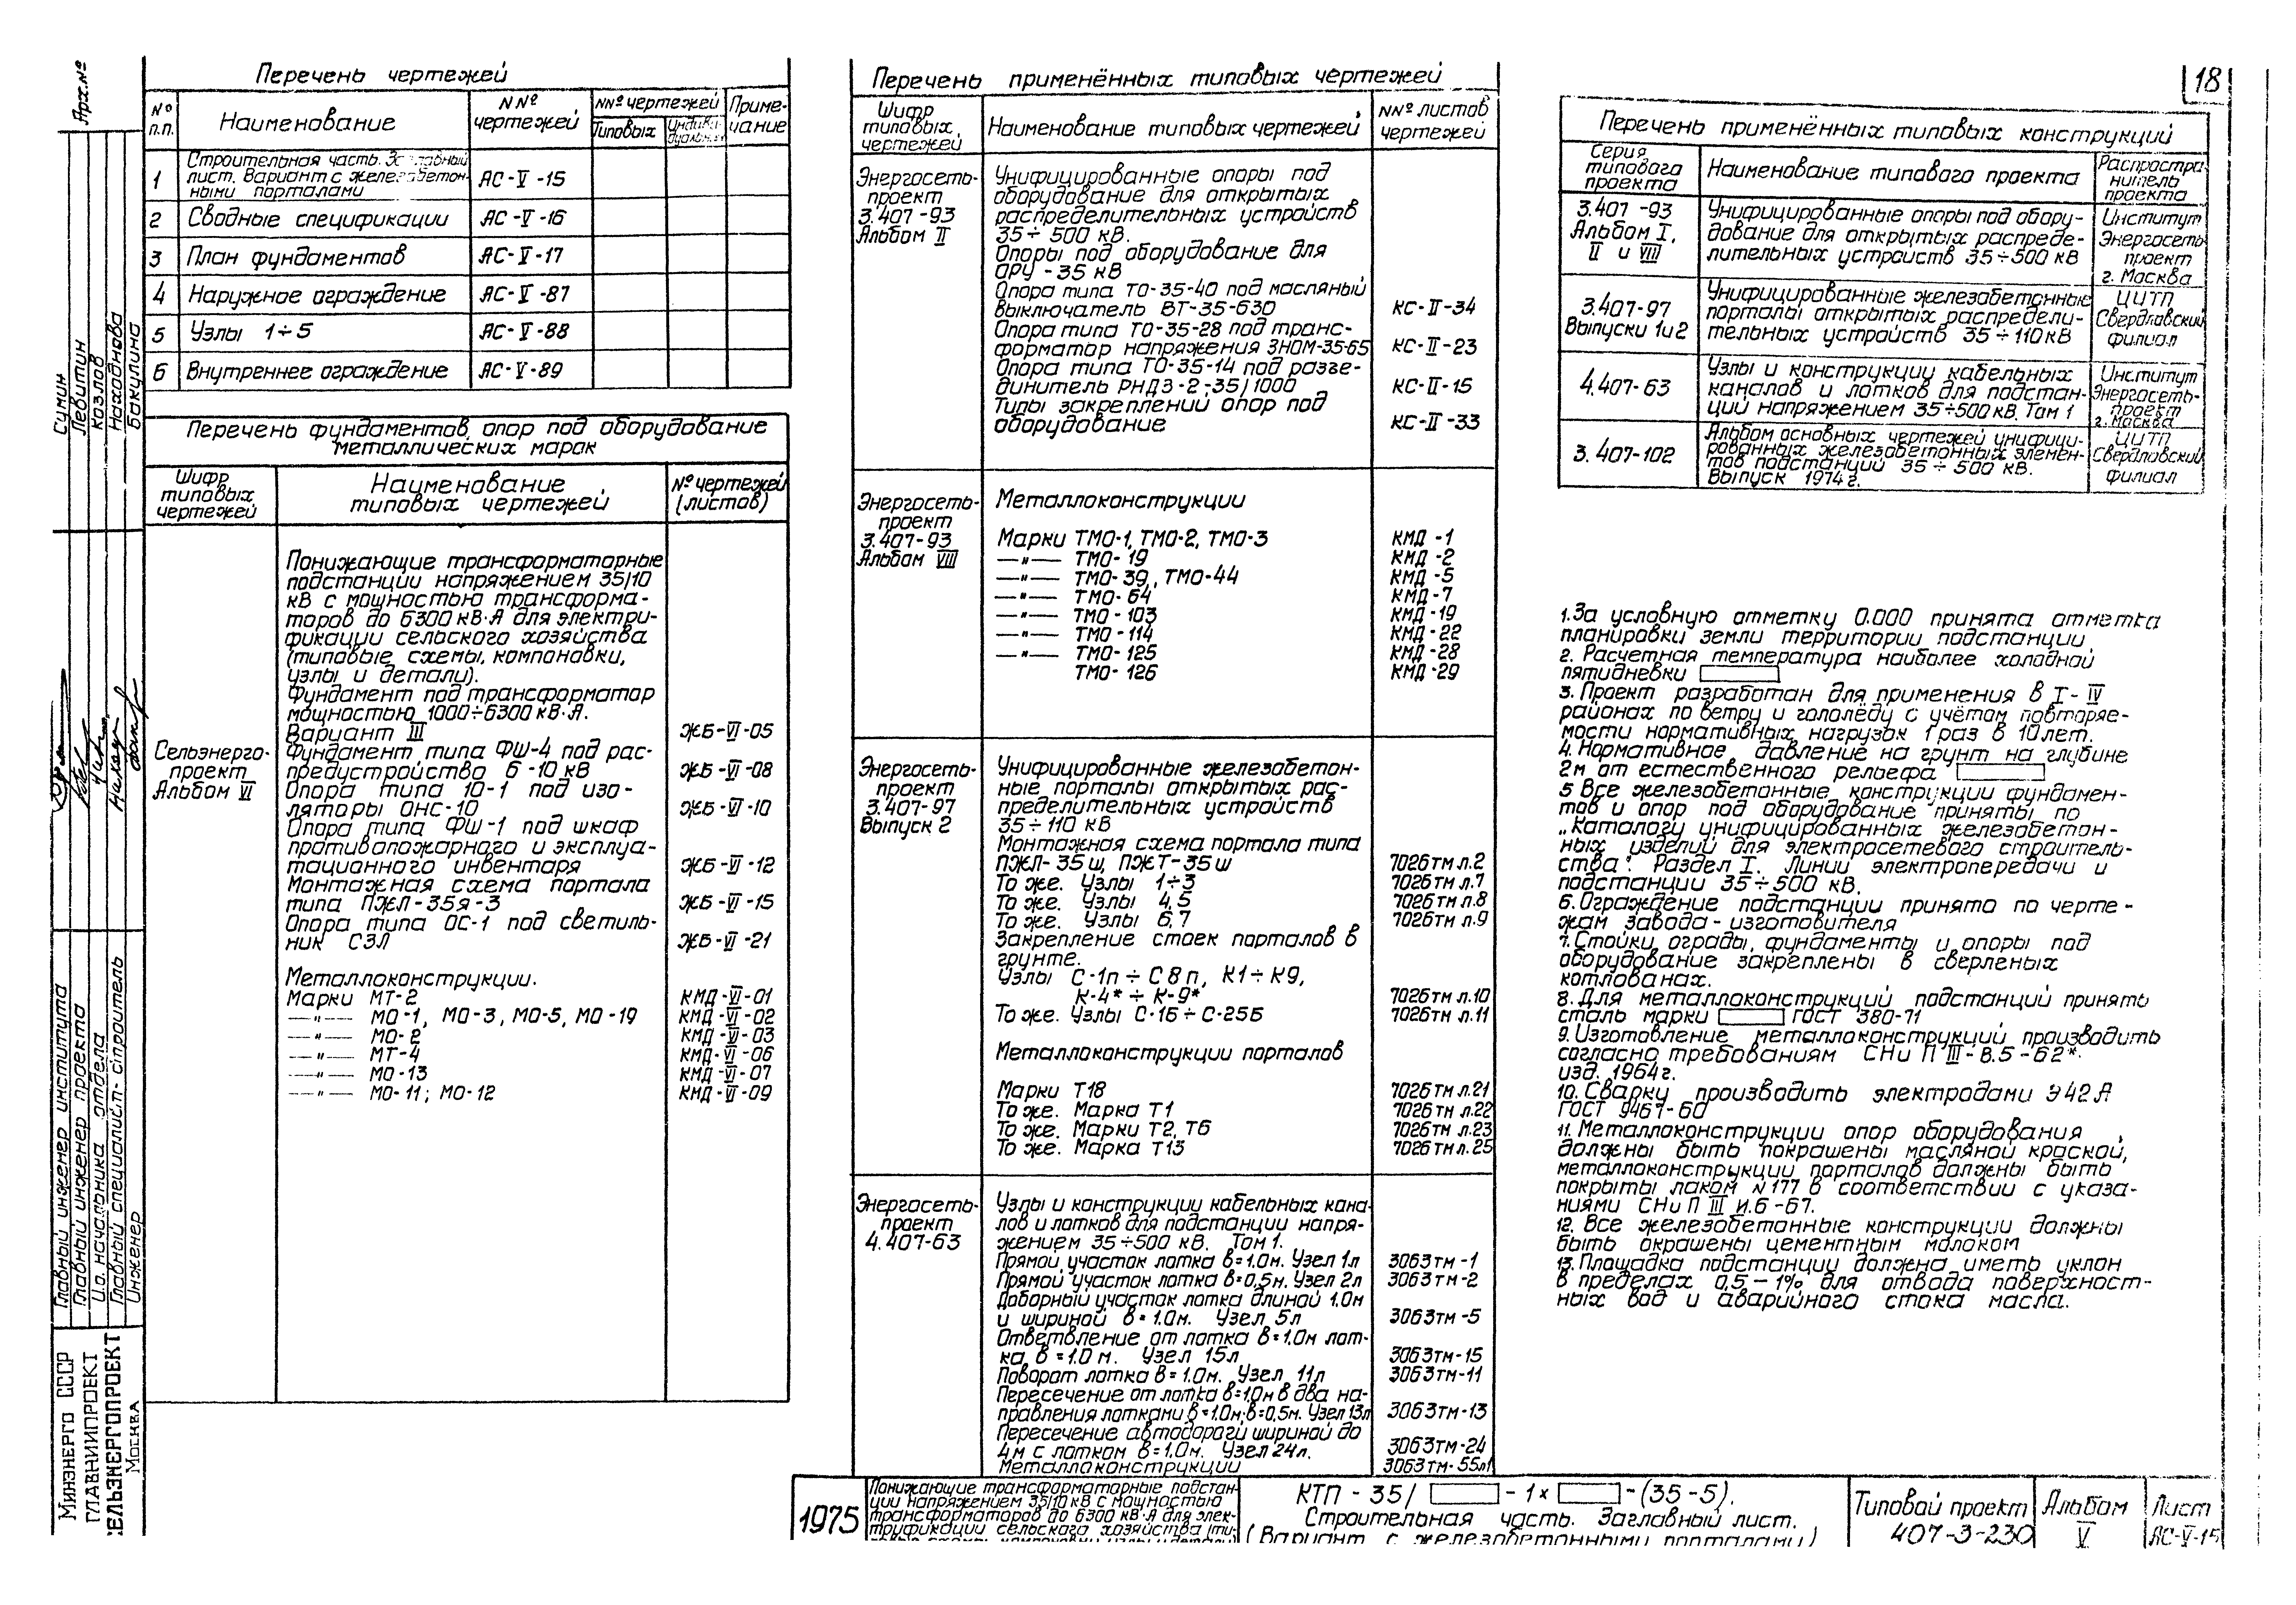 18
Арх.№
Перечень чертежей
№ п.п.
Наименование
NNº чертежей
NNº чертежей
Типовых
Приме-
чание
1
Строительная часть. Заглавный
лист. Вариант с железобетон-
ными порталами
АС-V-15
2 Сводные спецификации АС-V-16
3 План фундаментов АС-V-17
4 Наружное ограждение АС-V-87
5 Узлы 1÷5 АС-V-88
6 Внутреннее ограждение АС-V-89
Перечень фундаментов, опор под оборудование
металлических марок
Шифр
типовых
чертежей
Наименование
типовых чертежей
№ чертежей
(листов)
Сельэнерго-
проект
Альбом VI
Понижающие трансформаторные
подстанции напряжением 35/10
кВ с мощностью трансформа-
торов до 6300 кВ·А для электри-
фикации сельского хозяйства
(типовые схемы, компоновки,
узлы и детали).
Фундамент под трансформатор
мощностью 1000÷6300 кВ·А.
Вариант III ЖБ-VI-05
Фундамент типа ФШ-4 под рас-
предустройство 6-10 кВ ЖБ-VI-08
Опора типа 10-1 под изо-
ляторы ОНС-10 ЖБ-VI-10
Опора типа ФШ-1 под шкаф
противопожарного и эксплуа-
тационного инвентаря ЖБ-VI-12
Монтажная схема портала
типа ПЖЛ-35Я-3 ЖБ-VI-15
Опора типа ОС-1 под светиль-
ник СЗЛ ЖБ-VI-21
Металлоконструкции.
Марки МТ-2 КМД-VI-01
—"— МО-1, МО-3, МО-5, МО-19 КМД-VI-02
—"— МО-2 КМД-VI-03
—"— МТ-4 КМД-VI-06
—"— МО-13 КМД-VI-07
—"— МО-11; МО-12 КМД-VI-09
Перечень применённых типовых чертежей
Шифр
типовых
чертежей
Наименование типовых чертежей
NNº листов
чертежей
Энергосеть-
проект
3.407-93
Альбом II
Унифицированные опоры под
оборудование для открытых
распределительных устройств
35÷500 кВ.
Опоры под оборудование для
ОРУ-35 кВ
Опора типа ТО-35-40 под масляный
выключатель ВТ-35-630 КС-II-34
Опора типа ТО-35-28 под транс-
форматор напряжения ЗНОМ-35-65 КС-II-23
Опора типа ТО-35-14 под разъе-
динитель РНДЗ-2-35/1000 КС-II-15
Типы закреплений опор под
оборудование КС-II-33
Энергосеть-
проект
3.407-93
Альбом VIII
Металлоконструкции
Марки ТМО-1, ТМО-2, ТМО-3 КМД-1
—"— ТМО-19 КМД-2
—"— ТМО-39, ТМО-44 КМД-5
—"— ТМО-64 КМД-7
—"— ТМО-103 КМД-19
—"— ТМО-114 КМД-22
—"— ТМО-125 КМД-28
ТМО-126 КМД-29
Энергосеть-
проект
3.407-97
Выпуск 2
Унифицированные железобетон-
ные порталы открытых рас-
пределительных устройств
35÷110 кВ
Монтажная схема портала типа
ПЖЛ-35ш, ПЖТ-35ш 7026тм л.2
То же. Узлы 1÷3 7026тм л.7
То же. Узлы 4,5 7026тм л.8
То же. Узлы 6,7 7026тм л.9
Закрепление стоек порталов в
грунте.
Узлы С-1п ÷ С8п, К1÷К9,
К-4* ÷ К-9* 7026тм л.10
То же. Узлы С-1б ÷ С-25б 7026тм л.11
Металлоконструкции порталов
Марки Т18 7026тм л.21
То же. Марка Т1 7026тм л.22
То же. Марки Т2, Т6 7026тм л.23
То же. Марка Т13 7026тм л.25
Энергосеть-
проект
4.407-63
Узлы и конструкции кабельных кана-
лов и лотков для подстанции напря-
жением 35÷500 кВ. Том 1.
Прямой участок лотка в=1.0м. Узел 1л 3063тм-1
Прямой участок лотка в=0,5м. Узел 2л 3063тм-2
Доборный участок лотка длиной 1.0м
и шириной в=1.0м. Узел 5л 3063тм-5
Ответвление от лотка в=1.0м лот-
ка в=1.0м. Узел 15л 3063тм-15
Поворот лотка в=1.0м. Узел 11л 3063тм-11
Пересечение от лотка в=1.0м в два на-
правления лотками в=1.0м; в=0,5м. Узел 13л 3063тм-13
Пересечение автодороги шириной до
4м с лотком в=1.0м. Узел 24л. 3063тм-24
Металлоконструкции 3063тм-55л1
Перечень применённых типовых конструкций
Серия
типового
проекта
Наименование типового проекта
Распростра-
нитель
проекта
3.407-93
Альбом I,
II и VIII
Унифицированные опоры под обору-
дование для открытых распреде-
лительных устройств 35÷500 кВ
Институт
Энергосеть-
проект
г. Москва
3.407-97
Выпуски 1 и 2
Унифицированные железобетонные
порталы открытых распредели-
тельных устройств 35÷110 кВ
ЦИТП
Свердловский
филиал
4.407-63
Узлы и конструкции кабельных
каналов и лотков для подстан-
ций напряжением 35÷500 кВ. Том 1
Институт
Энергосеть-
проект
г. Москва
3.407-102
Альбом основных чертежей унифици-
рованных железобетонных элемен-
тов подстанций 35÷500 кВ.
Выпуск 1974г.
ЦИТП
Свердловский
филиал
1. За условную отметку 0.000 принята отметка
планировки земли территории подстанции.
2. Расчетная температура наиболее холодной
пятидневки
3. Проект разработан для применения в I-IV
районах по ветру и гололёду с учётом повторяе-
мости нормативных нагрузок 1 раз в 10 лет.
4. Нормативное давление на грунт на глубине
2м от естественного рельефа
5 Все железобетонные конструкции фундамен-
тов и опор под оборудование приняты по
„Каталогу унифицированных железобетон-
ных изделий для электросетевого строитель-
ства". Раздел I. Линии электропередачи и
подстанции 35÷500 кВ.
6. Ограждение подстанции принято по черте-
жам завода-изготовителя
7. Стойки ограды, фундаменты и опоры под
оборудование закреплены в сверленых
котлованах.
8. Для металлоконструкций подстанций принять
сталь марки ГОСТ 380-71
9. Изготовление металлоконструкций производить
согласно требованиям СНиП III-В.5-62*.
изд. 1964г.
10. Сварку производить электродами Э42А
ГОСТ 9467-60
11. Металлоконструкции опор оборудования
должны быть покрашены масляной краской,
металлоконструкции порталов должны быть
покрыты лаком N177 в соответствии с указа-
ниями СНиП III И.6-67.
12. Все железобетонные конструкции должны
быть окрашены цементным молоком
13. Площадка подстанции должна иметь уклон
в пределах 0,5-1% для отвода поверхност-
ных вод и аварийного стока масла.
Сумин
Левитин
Козлов
Находнова
Бакулина
Главный инженер института
Главный инженер проекта
И.о. начальника отдела
Главный специалист-строитель
Инженер
Минэнерго СССР
ГЛАВНИИПРОЕКТ
СЕЛЬЭНЕРГОПРОЕКТ
Москва
1975
Понижающие трансформаторные подстан-
ции напряжением 35/10 кВ с мощностью
трансформаторов до 6300 кВ·А для элек-
трификации сельского хозяйства (ти-
КТП - 35/ - 1× - (35-5).
Строительная часть. Заглавный лист.
(Вариант с железобетонными порталами)
Типовой проект
407-3-230
Альбом
V
Лист
АС-V-15